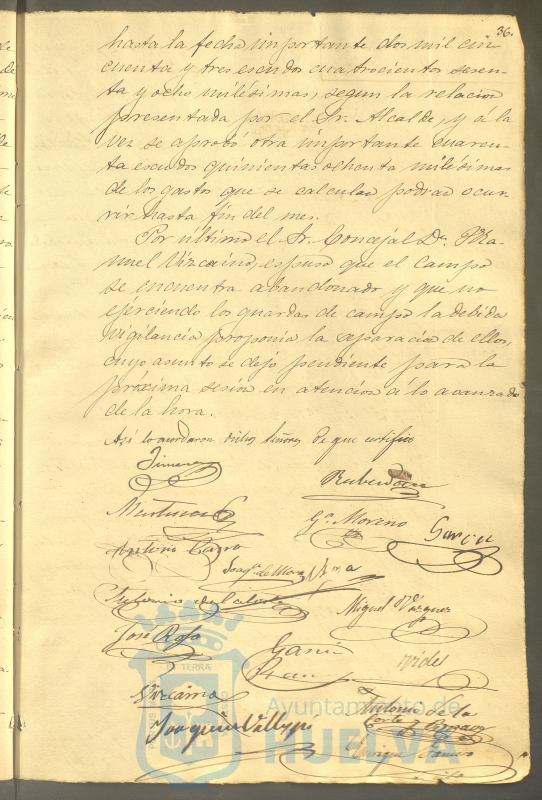 36.
hasta la fecha importante dos mil cin
cuenta y tres escudos cuatrocientos sesen-
ta y ocho milésimas, segun la relacion
presentada por el Sr. Alcalde, y á la
vez se aprobó otra importante cuaren-
ta escudos quinientas ochenta milésimas
de los gastos que se calculan podran ocur-
rir hasta fin del mes.
Por último el Sr. Concejal Dn. Ma-
nuel Vizcaino, espuso que el campo
se encuentra abandonado y que no
ejerciendo los guardas de campo la debida
vigilancia proponia la separacion de ellos,
cuyo asunto se dejó pendiente para la
próxima sesion en atencion á lo avanzado
de la hora.
Asi lo acordaron dichos Señores de que certifico
Jimenez
Ga. Moreno
Garcia
Antonio
Joaqn. de Mora
Miguel Vazquez
José Rojo
Garcia
Vizcaino
Antonio de la
Corte
Joaquin Vallejo
Ayuntamiento de
HUELVA